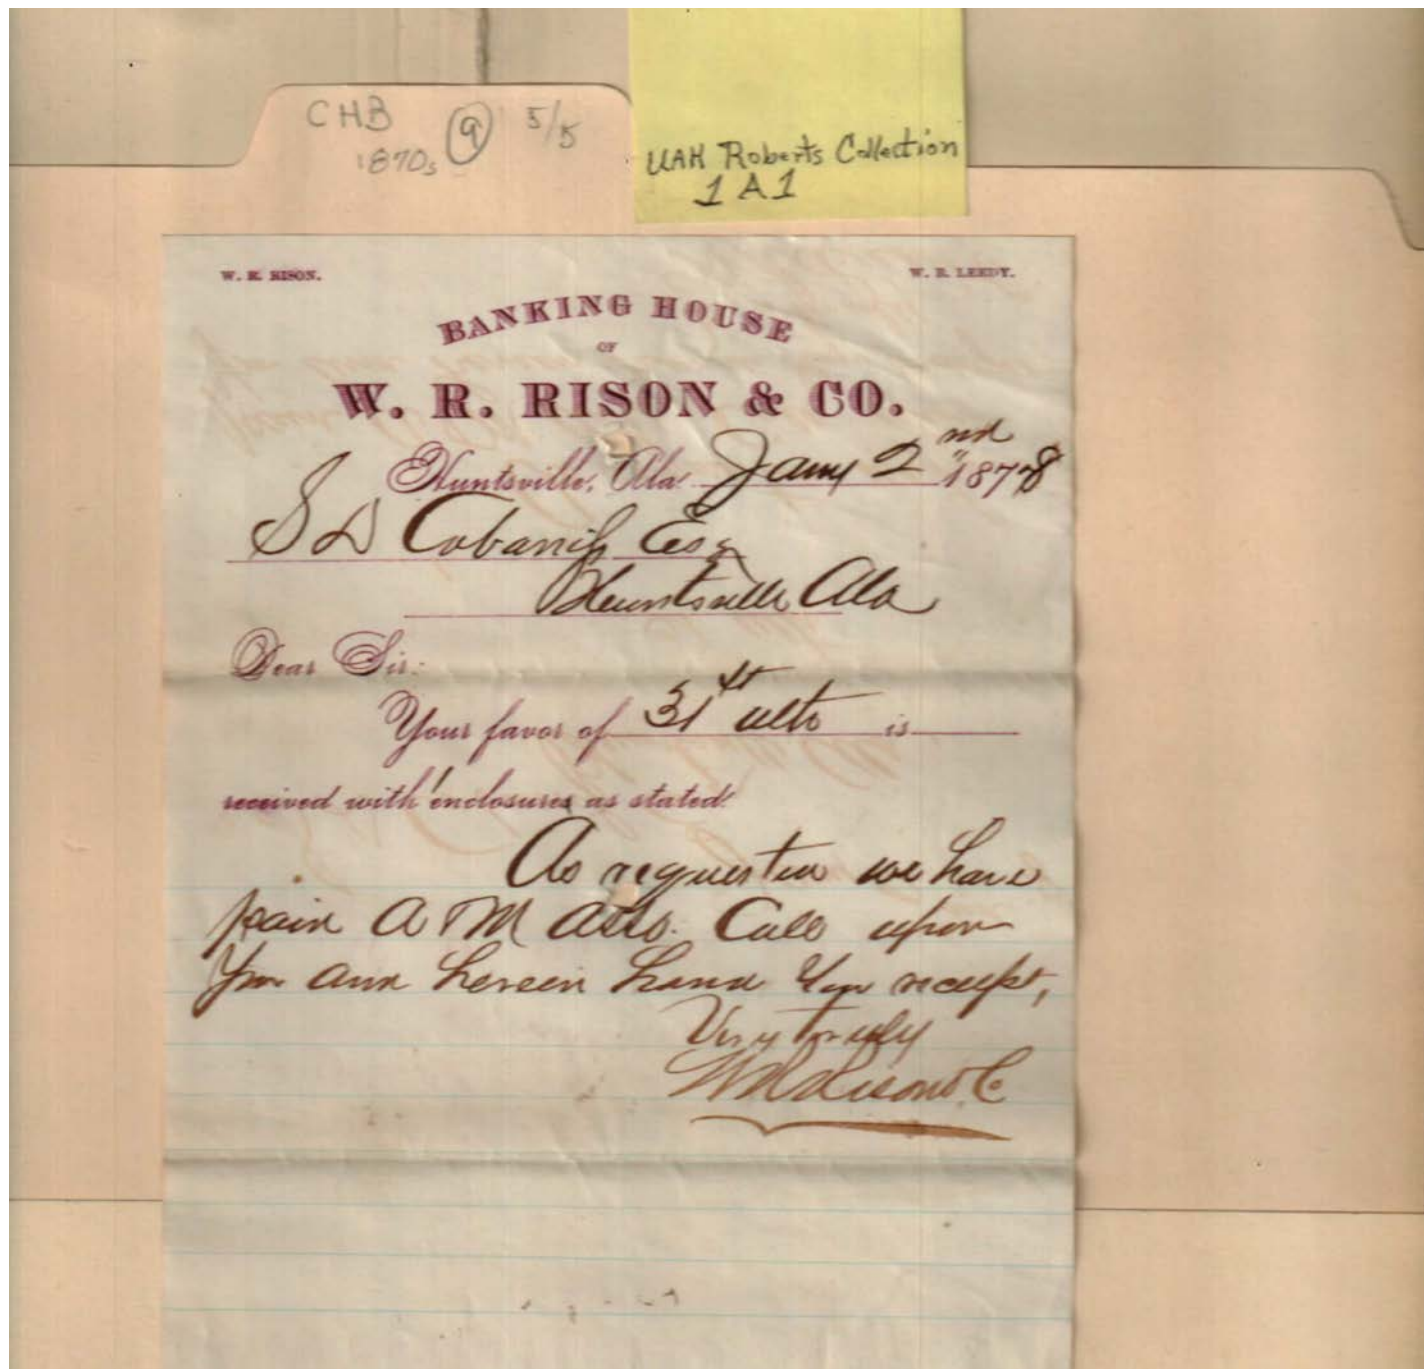 CHB 9 5/5
1870s
UAH Roberts Collection
1 A 1
W. R. RISON.
W. B. LEEDY.
BANKING HOUSE
OF
W. R. RISON & CO.
Huntsville, Ala. Jany 2nd 1878
S D Cabaniss Esq
Huntsville Ala
Dear Sir:
Your favor of 31st ulto is
received with enclosures as stated.
As requested we have
paid A M Call upon
you and herein hand you receipt,
Very truly
W R Rison & Co